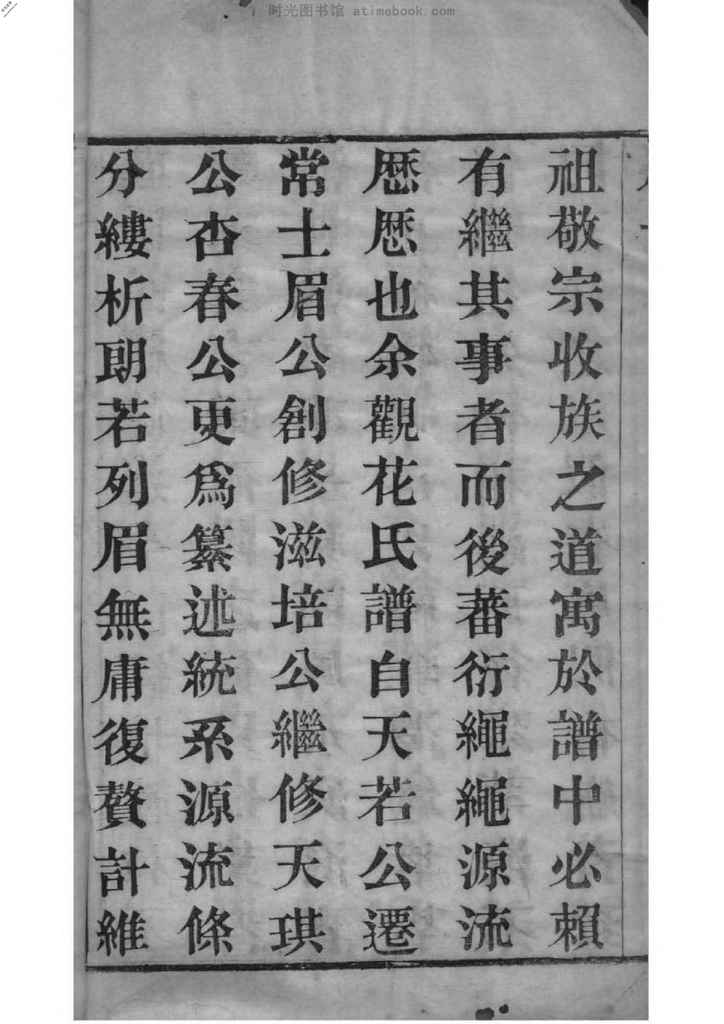 时光图书馆 atimebook.com
祖敬宗收族之道寓於譜中必賴
有繼其事者而後蕃衍繩繩源流
歷歷也余觀花氏譜自天若公遷
常士眉公創修滋培公繼修天琪
公杏春公更爲纂述統系源流條
分縷析朗若列眉無庸復贅計維